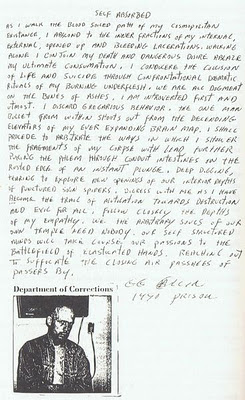 SELF ABSORBED
AS I WALK THE BLOOD SOAKED PATH OF MY COSMOPOLITAN
EXISTANCE, I ABSCOND TO THE INNER FRACTIONS OF MY INTERNAL,
EXTERNAL, OPENED UP AND BLEEDING LACERATIONS. WALKING
ALONE I CONTAIN MY DEATH AND DANGEROUS DESIRE
MY ULTIMATE CONSUMATION. I THE
OF LIFE AND SUICIDE THROUGH CONFRONTATIONAL DRAMATIC
RITUALS OF MY BURNING UNDERFLESH. WE ARE ALL
IN THE DUNES OF ASHES. I AM INTROVERTED FIRST AND
UTMOST. I DISCARD GREGARIOUS BEHAVIOR. THE ONE MAN
BULLET FROM WITHIN SHOOTS OUT FROM THE DESCENDING
ELEVATORS OF MY EVER EXPANDING BRAIN MAP. I SHALL
PROCEDE TO THE WAYS IN WHICH I
THE FRAGMENTS OF MY CORPSE WITH LEAD. FURTHER
THE PHLEM THROUGH CONDUIT INTESTINES ON THE
EDGE OF AN INSTANT PLUNGE. DEEP DIGGING,
TO EXPLORE NEW OPENINGS OF OUR INTERIOR DEPTHS
OF PUNCTURED SKIN SPIDERS. WITH ME AS I HAVE
BECOME THE TRAIL OF TOWARDS DESTRUCTION
AND EVIL FOR ALL. FOLLOW CLOSELY THE DEPTHS
OF MY EMPATHY. WE THE ARBITRARY SOULS OF OUR
OWN TEMPLE NEED NOBODY. OUR SELF STRUCTURED
MINDS WILL TAKE OUR PASSIONS TO THE
BATTLEFIELD OF HANDS. REACHING OUT
TO SUFFICATE THE CLOSING AIR OF
PASSERS BY.
GG Allin
1990 PRISON
Department of Corrections